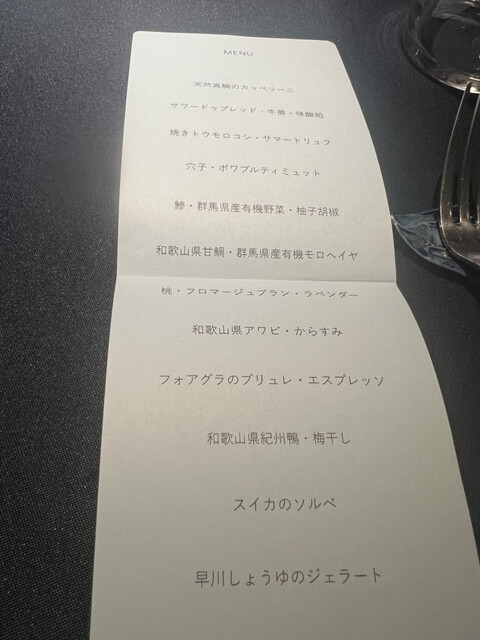 MENU
天然真鯛のカッペリーニ
サワードゥブレッド・牛醤・味醂粕
焼きトウモロコシ・サマートリュフ
穴子・ポワブルティミュット
鯵・群馬県産有機野菜・柚子胡椒
和歌山県甘鯛・群馬県産有機モロヘイヤ
桃・フロマージュブラン・ラベンダー
和歌山県アワビ・からすみ
フォアグラのブリュレ・エスプレッソ
和歌山県紀州鴨・梅干し
スイカのソルベ
早川しょうゆのジェラート